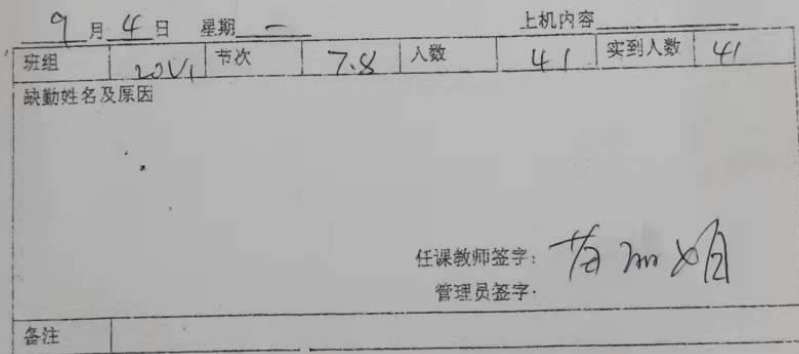 9月4日 星期一 上机内容
班组 20V1 节次 7.8 人数 41 实到人数 41
缺勤姓名及原因
任课教师签字:
管理员签字:
备注